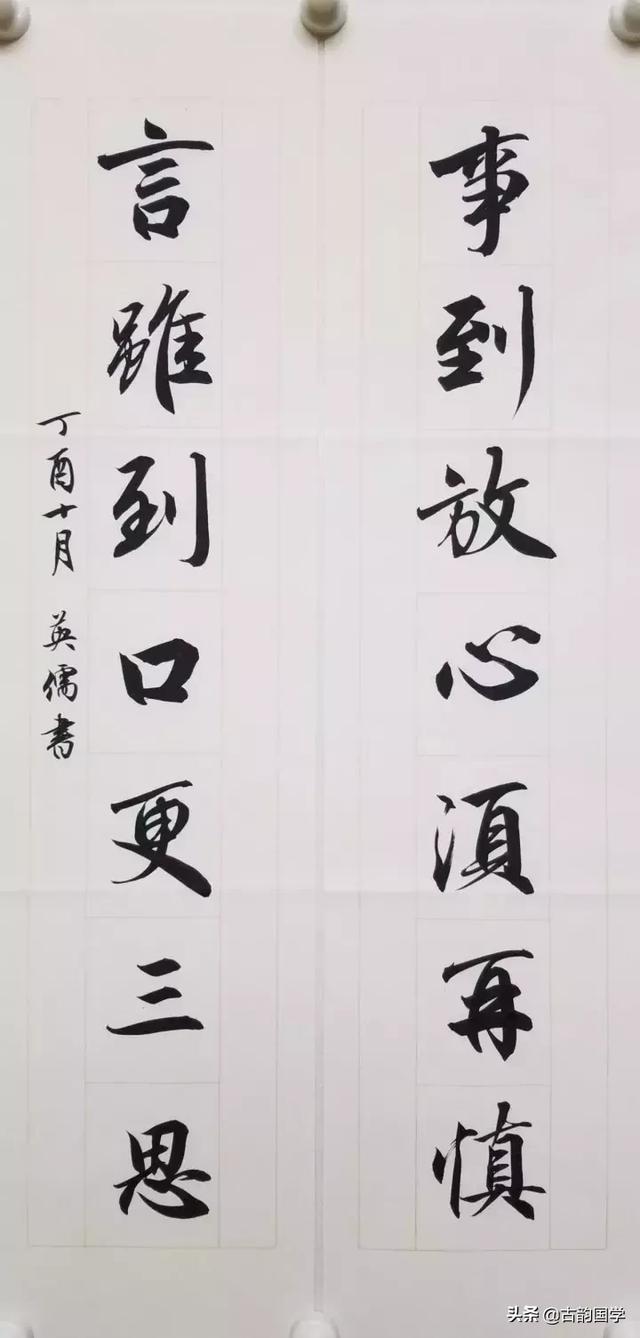 事到放心須再慎
言雖到口更三思
丁酉十月 英儒書
头条 @古韵国学